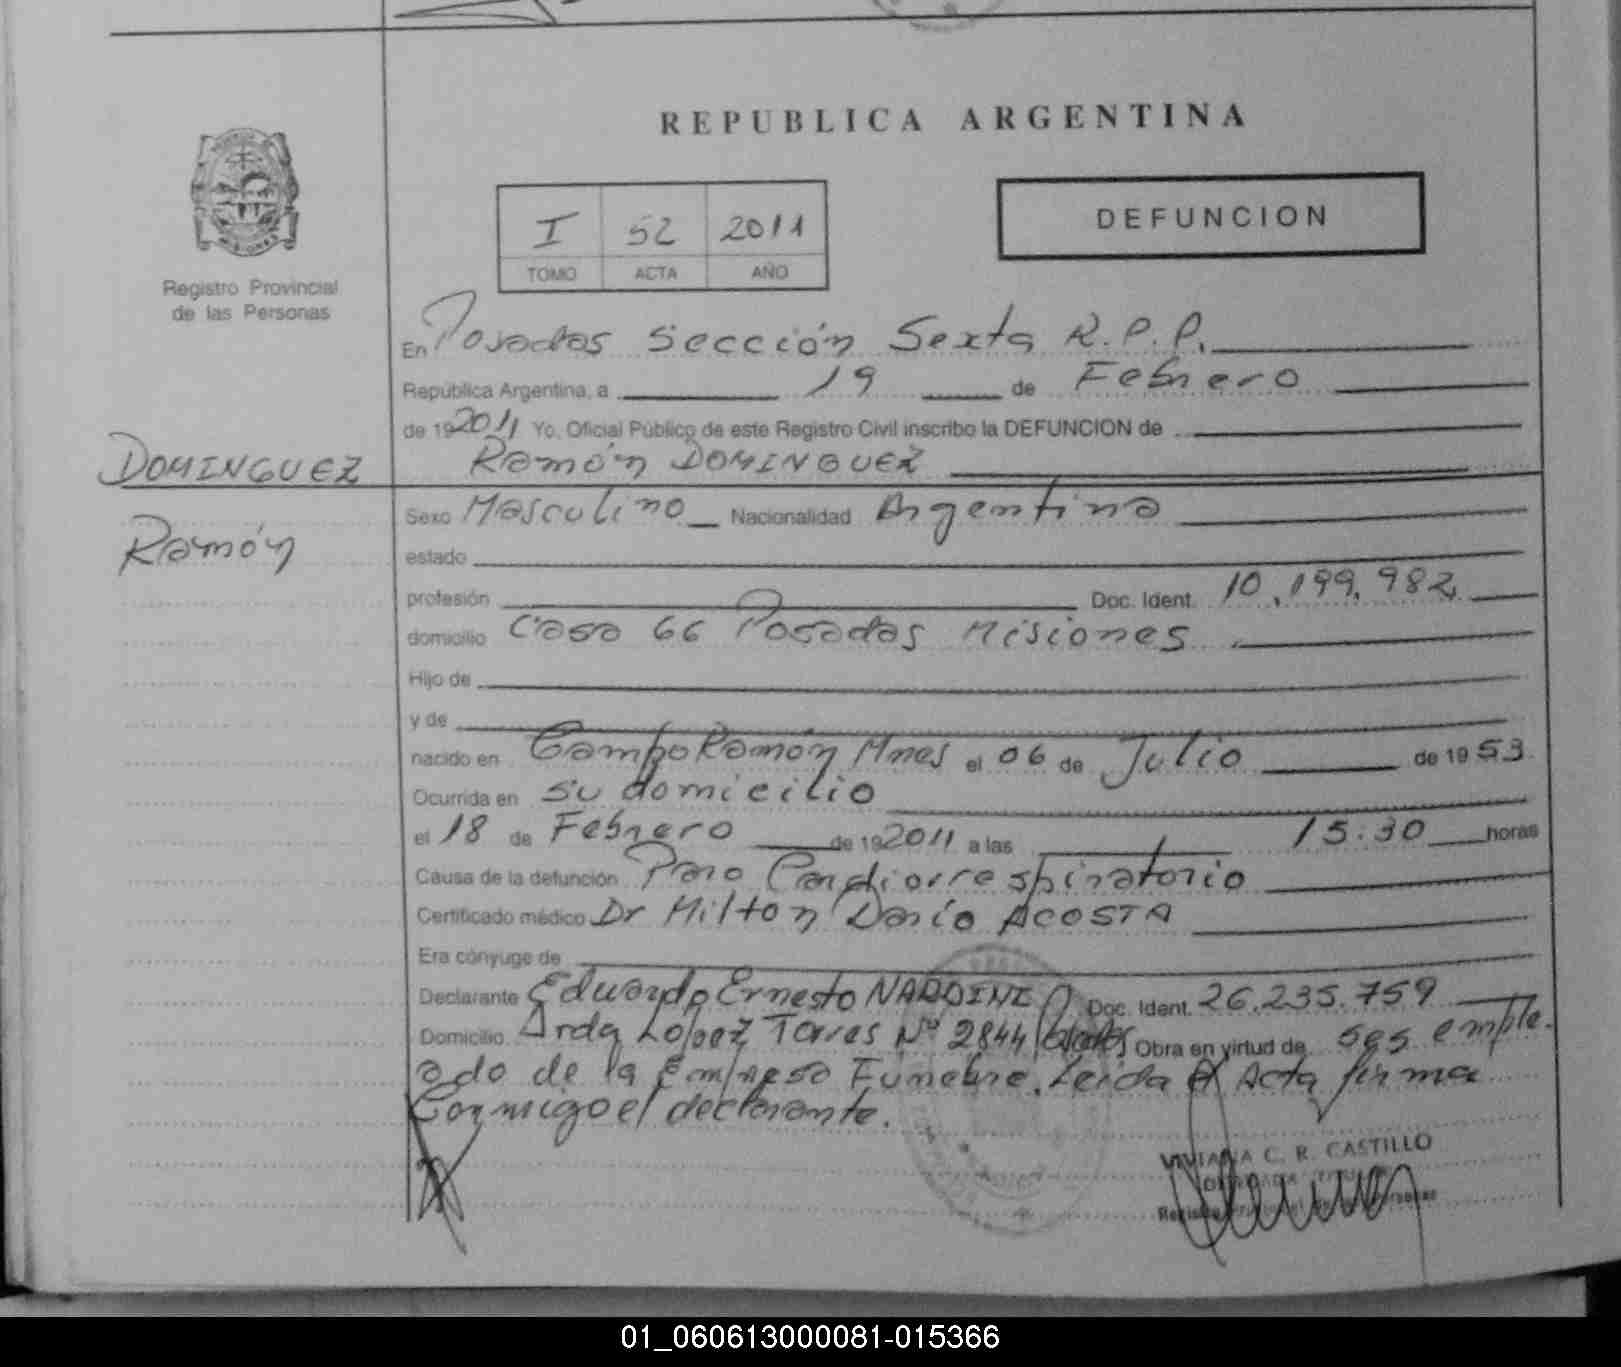 REPUBLICA ARGENTINA
Registro Provincial
de las Personas
I 52 2011
TOMO ACTA AÑO
DEFUNCION
En Posadas Sección Sexta R.P.P.
República Argentina, a 19 de Febrero
de 192011 Yo, Oficial Público de este Registro Civil inscribo la DEFUNCION de
DOMINGUEZ
Ramón DOMINGUEZ
Ramón
Sexo Masculino Nacionalidad Argentina
estado
profesión Doc. Ident. 10.199.982
domicilio Casa 66 Posadas Misiones
Hijo de
y de
nacido en Campo Ramón Mnes el 06 de Julio de 1953
Ocurrida en su domicilio
el 18 de Febrero de 192011 a las 15:30 horas
Causa de la defunción Paro Cardiorrespiratorio
Certificado médico Dr Milton Darío ACOSTA
Era cónyuge de
Declarante Eduardo Ernesto NARDINI Doc. Ident. 26.235.759
Domicilio Avda Lopez Torres Nº 2844 Obra en virtud de ses emple
ado de la Empresa Fúnebre. Leída el Acta firma
Conmigo el declarante.
VIVIANA C. R. CASTILLO
01_060613000081-015366